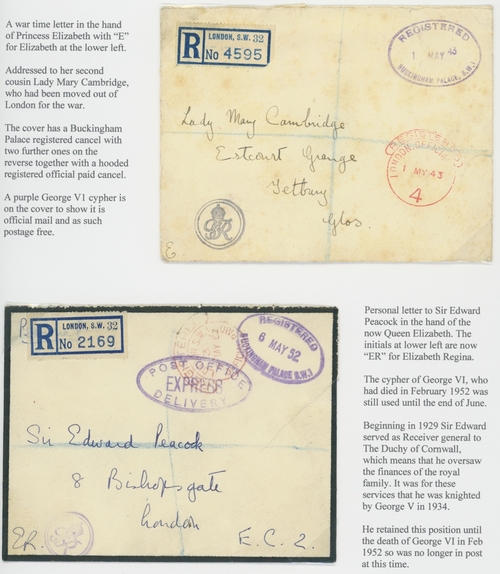 A war time letter in the hand
of Princess Elizabeth with “E”
for Elizabeth at the lower left.
Addressed to her second
cousin Lady Mary Cambridge,
who had been moved out of
London for the war.
The cover has a Buckingham
Palace registered cancel with
two further ones on the
reverse together with a hooded
registered official paid cancel.
A purple George V1 cypher is
on the cover to show it is
official mail and as such
postage free.
R
LONDON, S.W. 32
No 4595
REGISTERED
1 MAY 43
BUCKINGHAM PALACE, S.W.1
Lady Mary Cambridge
Estcourt Grange
Tetbury
Glos.
REGISTERED
LONDON OFFICIAL
1 MY 43
4
GR
VI
E
R
LONDON, S.W. 32
No 2169
REGISTERED
6 MAY 52
BUCKINGHAM PALACE S.W.1
POST OFFICE
EXPRESS
DELIVERY
Sir Edward Peacock
8 Bishopsgate
London
E.C.2.
ER.
Personal letter to Sir Edward
Peacock in the hand of the
now Queen Elizabeth. The
initials at lower left are now
“ER” for Elizabeth Regina.
The cypher of George VI, who
had died in February 1952 was
still used until the end of June.
Beginning in 1929 Sir Edward
served as Receiver general to
The Duchy of Cornwall,
which means that he oversaw
the finances of the royal
family. It was for these
services that he was knighted
by George V in 1934.
He retained this position until
the death of George VI in Feb
1952 so was no longer in post
at this time.